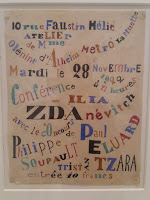 10 rue Faustin Hélie
ATELIER
de Mme
Olénine d'Alheim
Métro La Muette
Mardi le 28 Novembre
1922
Conférence
ILIA
ZDAnévitch
avec le concours
Paul
ELUARD
Philippe
SOUPAULT
TRISTAN TZARA
entrée 10 francs